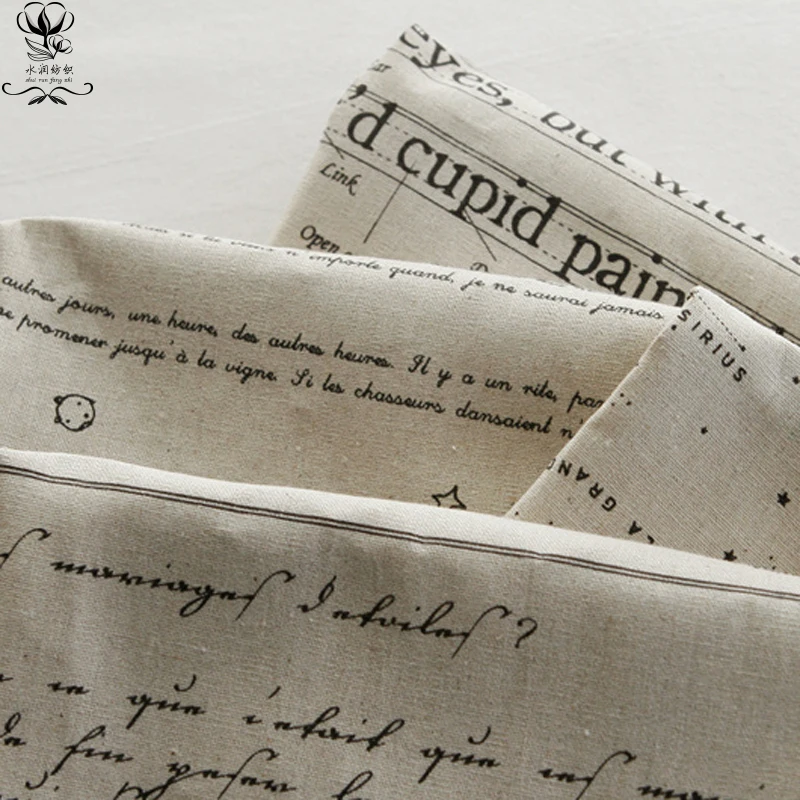 水润纺织
shui run fang zhi
eyes, but with
'd cupid pain
Link
Open
n'importe quand, je ne saurai jamais
autres jours, une heure, des autres heures. Il y a un rite, par
promener jusqu'à la vigne. Si les chasseurs dansaient n'
SIRIUS
LA GRAND
mariages detoiles ?
ce que c'etait que ces
de fin peser